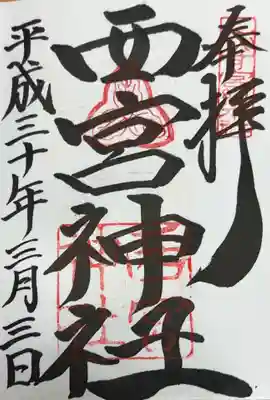 奉拝
西宮神社
平成三十年三月三日